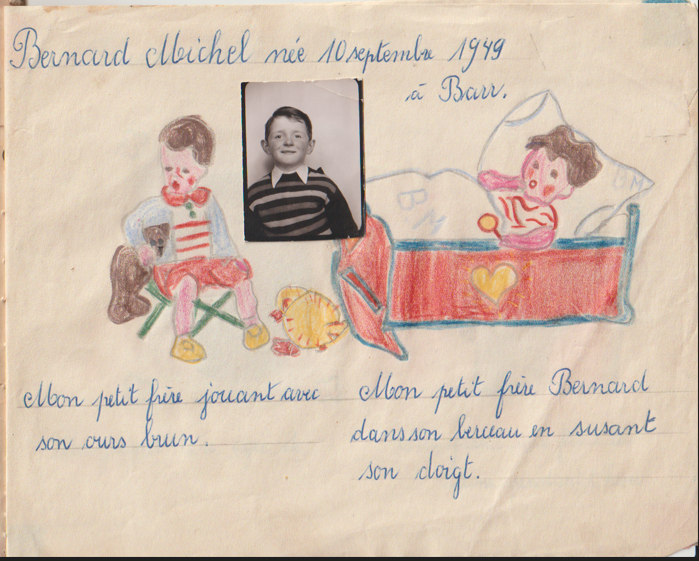 Bernard Michel née 10 septembre 1949
à Barr.
BM
BM
Mon petit frère jouant avec
son ours brun.
Mon petit frère Bernard
dans son berceau en susant
son doigt.